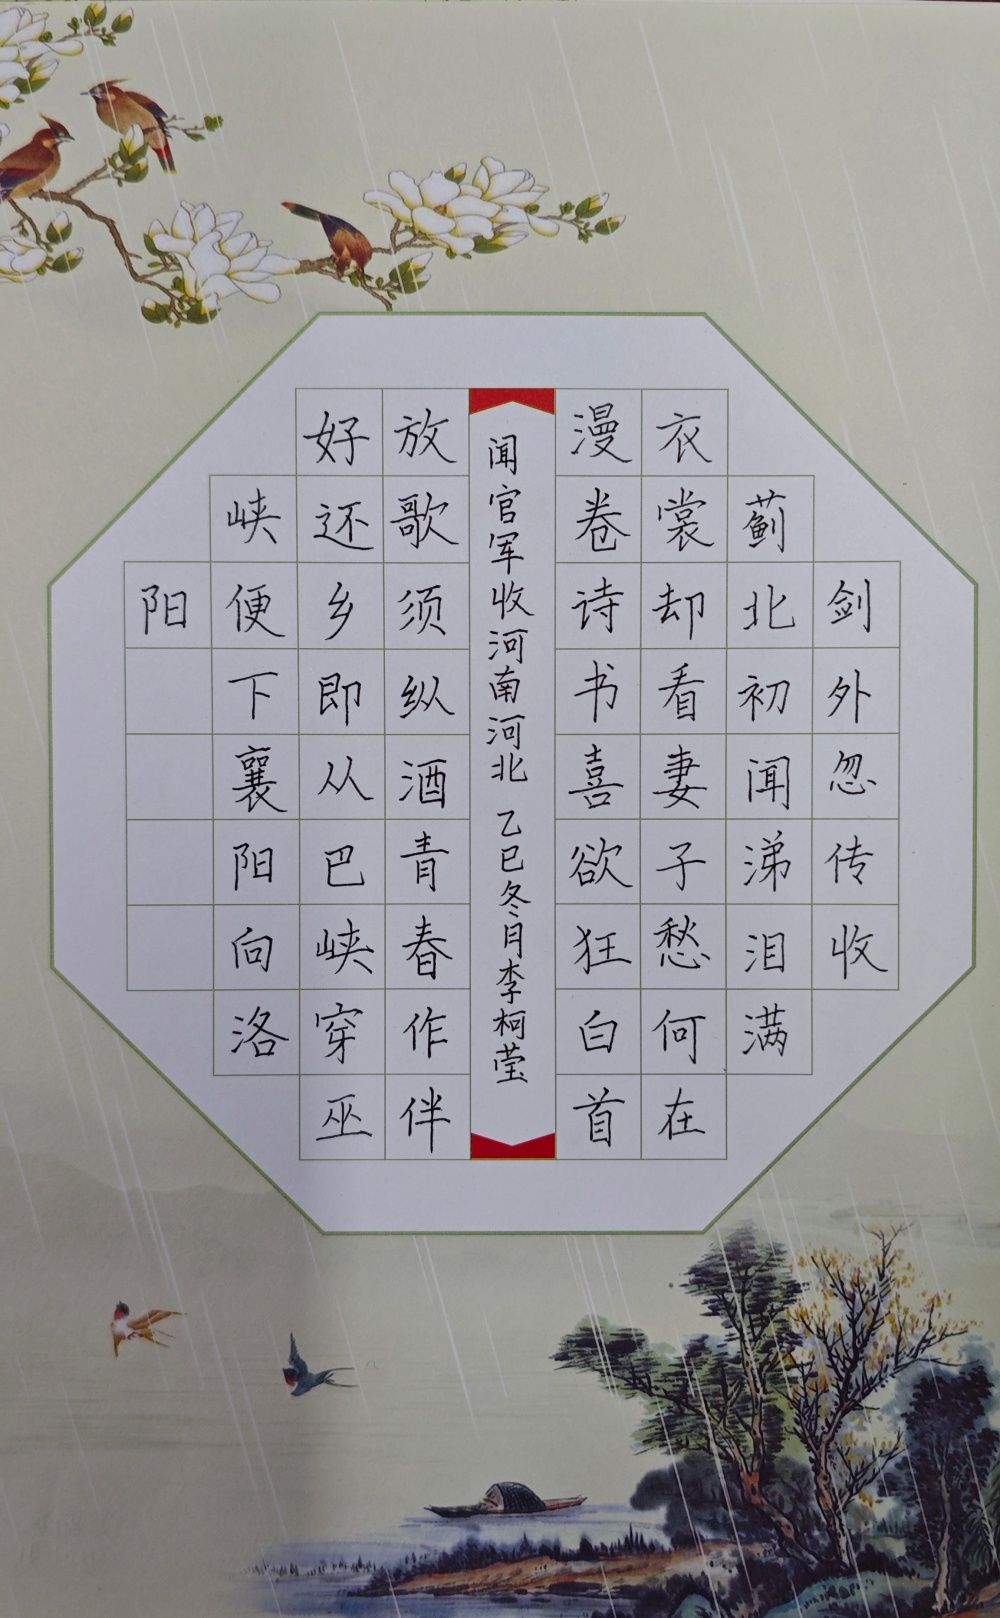 剑外忽传收
蓟北初闻涕泪满
衣裳却看妻子愁何在
漫卷诗书喜欲狂白首
闻官军收河南河北 乙巳冬月李柯莹
放歌须纵酒青春作伴
好还乡即从巴峡穿巫
峡便下襄阳向洛
阳